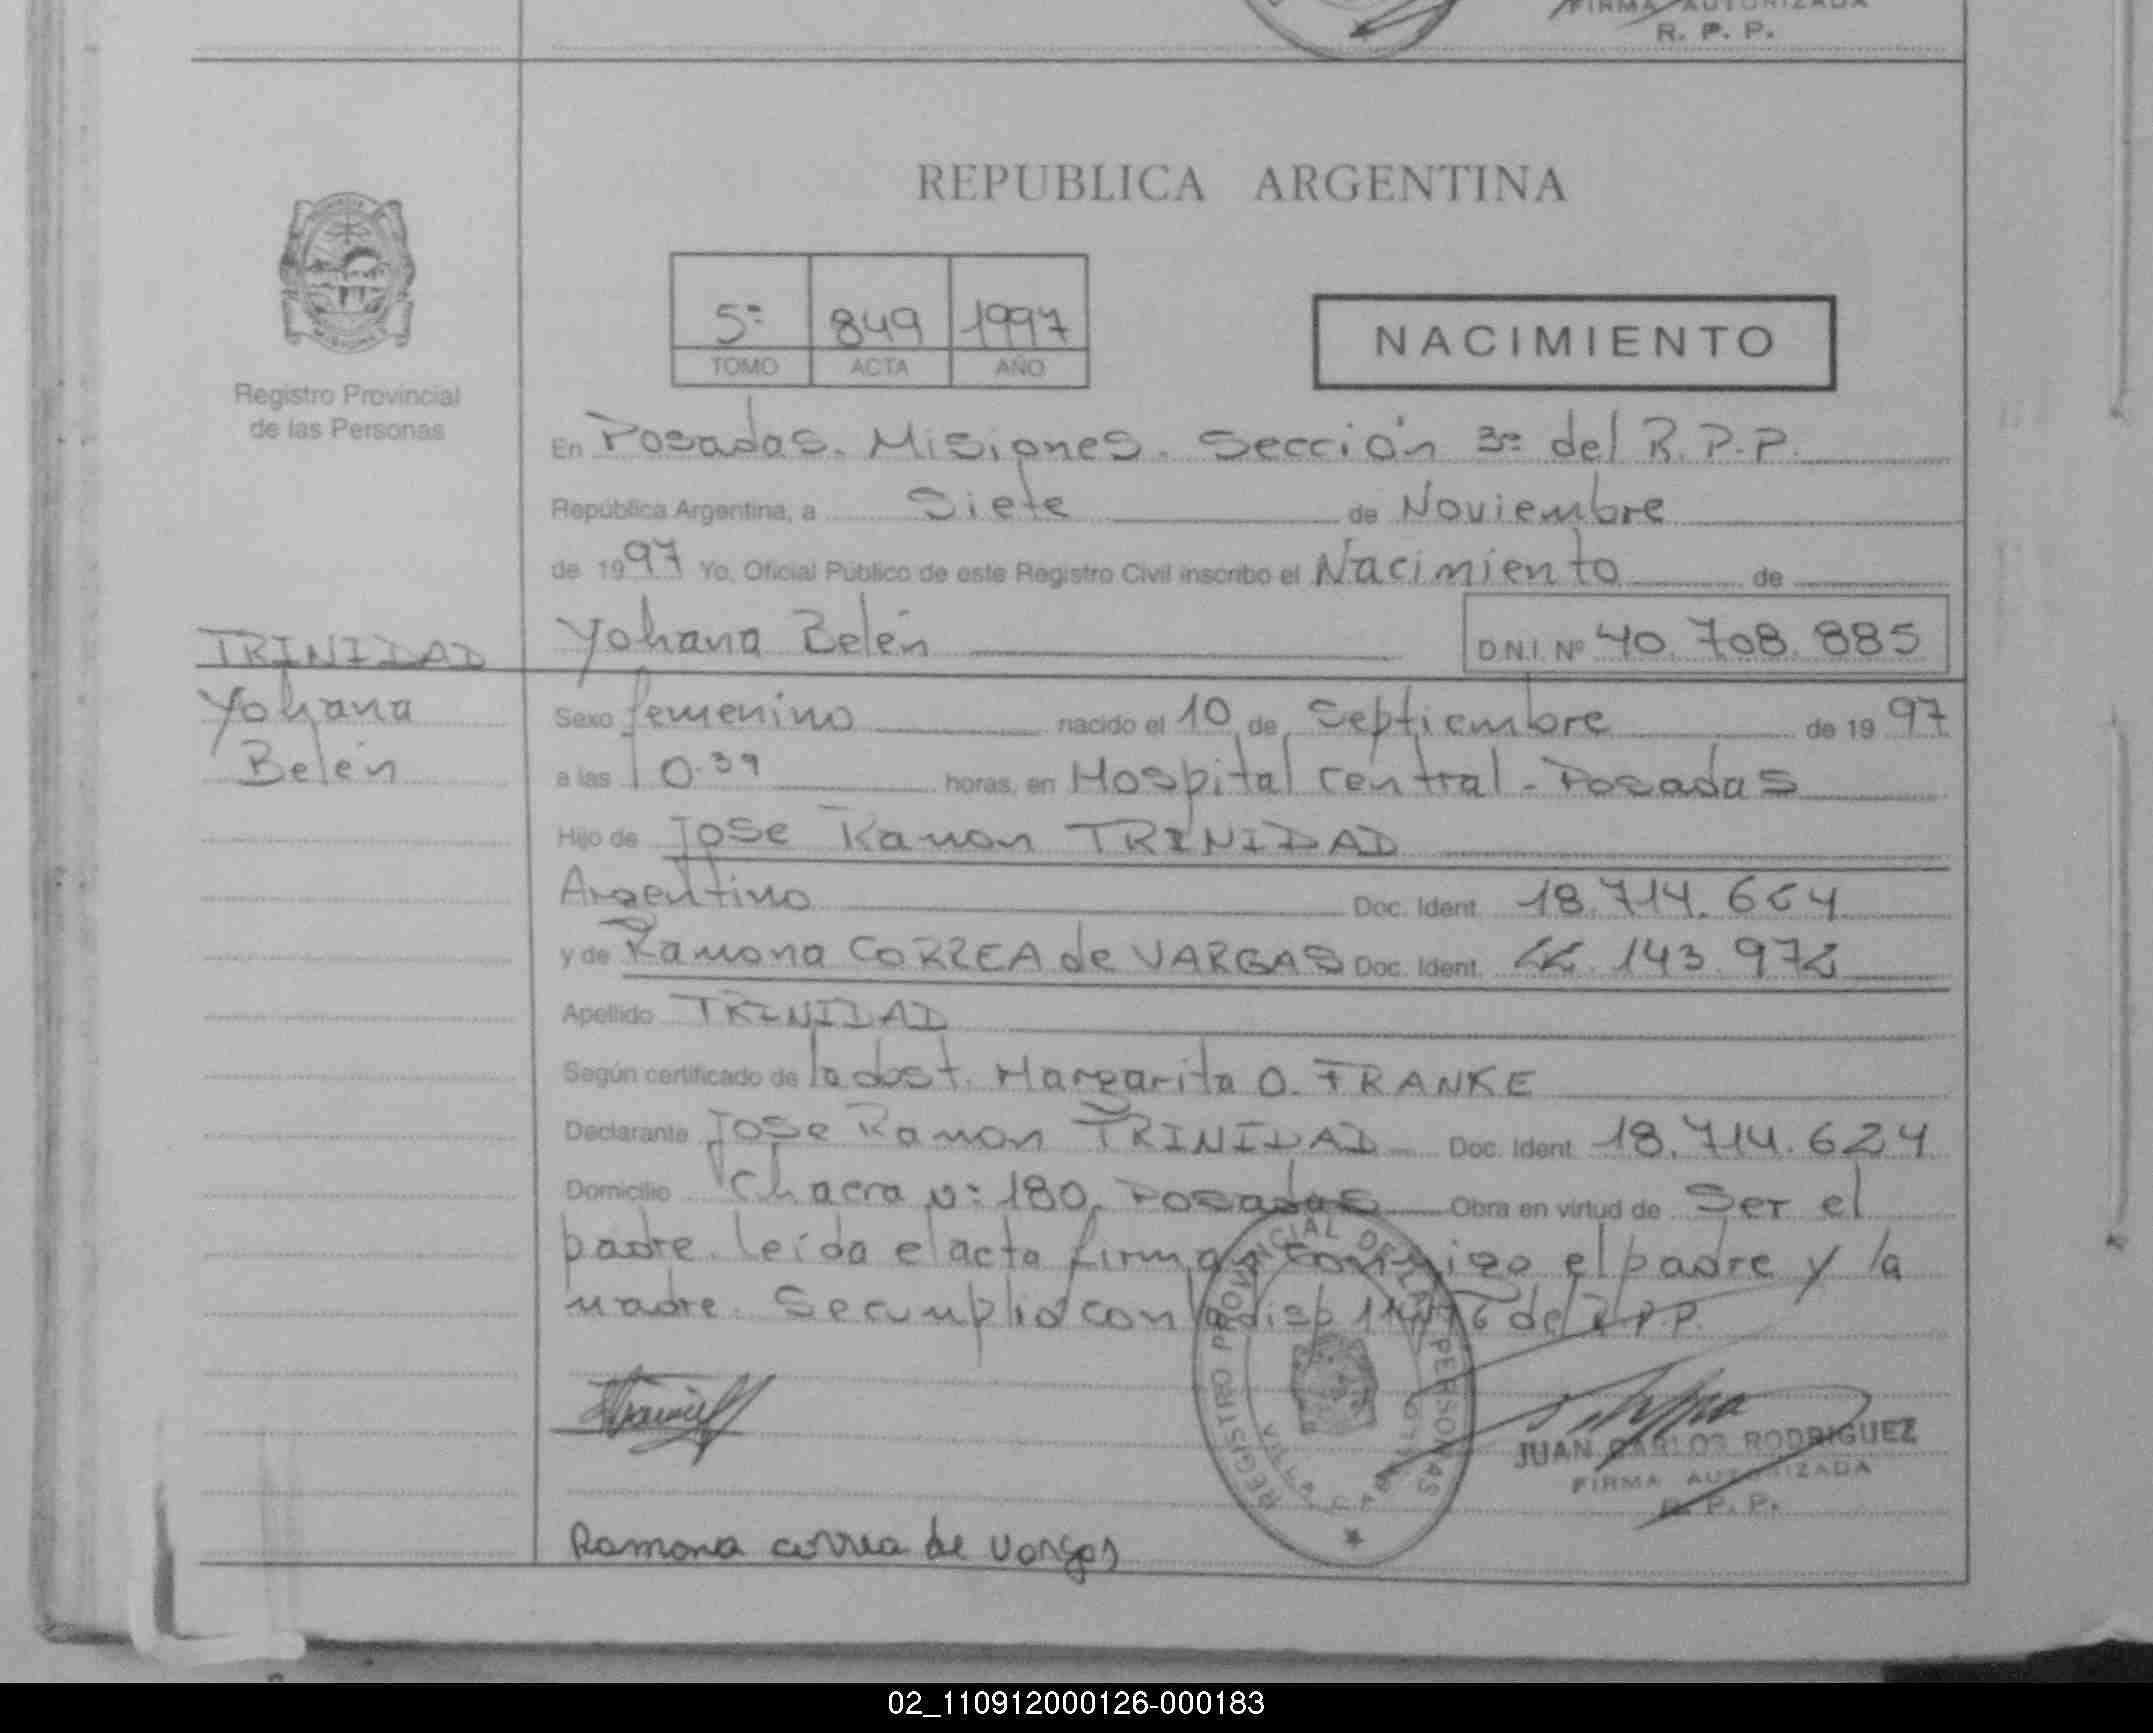 FIRMA AUTORIZADA
R. P. P.
REPUBLICA ARGENTINA
5º 849 1997
TOMO ACTA AÑO
NACIMIENTO
Registro Provincial
de las Personas
En Posadas. Misiones. Sección 3ª del R.P.P.
República Argentina, a Siete de Noviembre
de 1997 Yo, Oficial Público de este Registro Civil inscribo el Nacimiento de
Yohana Belén D.N.I. Nº 40.708.885
TRINIDAD
Yohana
Belén
Sexo femenino nacido el 10 de Septiembre de 1997
a las 10.39 horas, en Hospital Central - Posadas
Hijo de Jose Ramon TRINIDAD
Argentino Doc. Ident. 18.714.664
y de Ramona CORREA de VARGAS Doc. Ident. 22.143.972
Apellido TRINIDAD
Según certificado de la obst. Margarita O. FRANKE
Declarante Jose Ramon TRINIDAD Doc. Ident. 18.714.624
Domicilio Chacra nº 180. Posadas Obra en virtud de Ser el
padre. leída el acta firman conmigo el padre y la
madre. Se cumplió con la disp del R.P.P.
REGISTRO PROVINCIAL DE LAS PERSONAS
JUAN CARLOS RODRIGUEZ
FIRMA AUTORIZADA
R. P. P.
Ramona correa de vargas
02_110912000126-000183